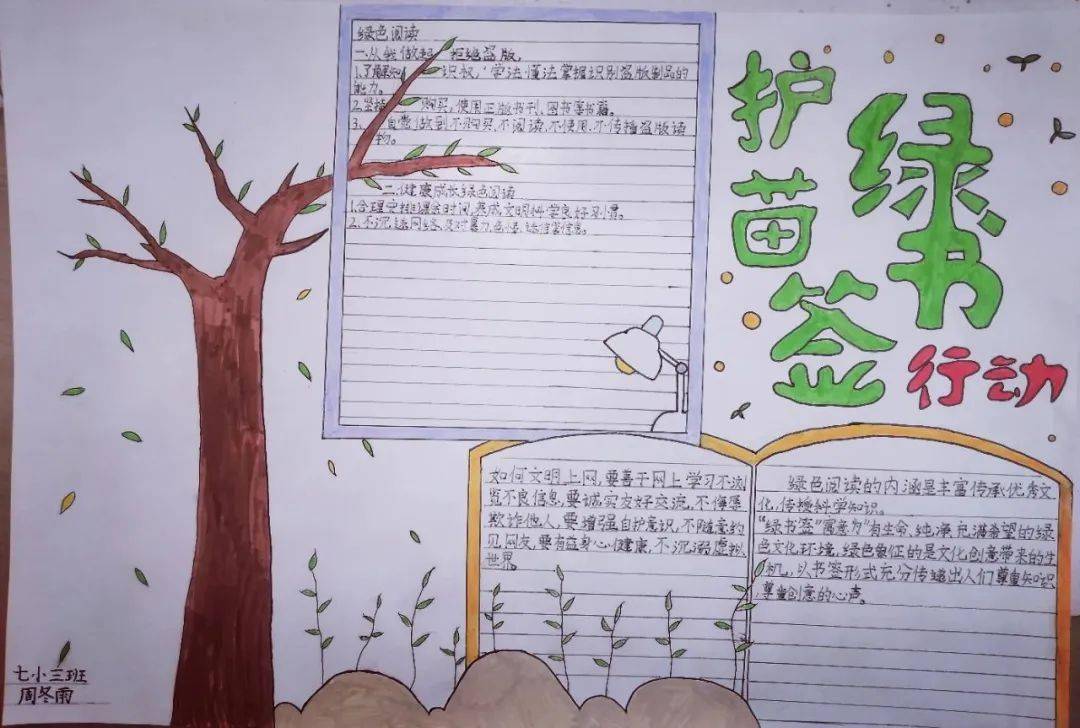 护苗
绿书签
行动
绿色阅读
一.从我做起 拒绝盗版,
1.了解知 识权,学法懂法掌握识别盗版制品的
能力。
2.坚持 购买,使用正版书刊、图书等书籍。
3、自觉做到不购买,不阅读,不使用,不传播盗版读
物。
二.健康成长绿色阅读
1.合理安排课余时间,养成文明科学良好习惯。
2.不沉迷网络,反对暴力,色情、迷信等信息。
如何文明上网,要善于网上学习不浏
览不良信息,要诚实友好交流,不侮辱
欺诈他人,要增强自护意识,不随意约
见网友,要有益身心健康,不沉溺虚拟
世界。
绿色阅读的内涵是丰富传承优秀文
化,传授科学知识。
“绿书签”寓意为“有生命,纯净充满希望的绿
色文化环境,绿色象征的是文化创意带来的生
机,以书签形式充分传递出人们尊重知识
尊重创意的心声。
七小三班
周冬雨